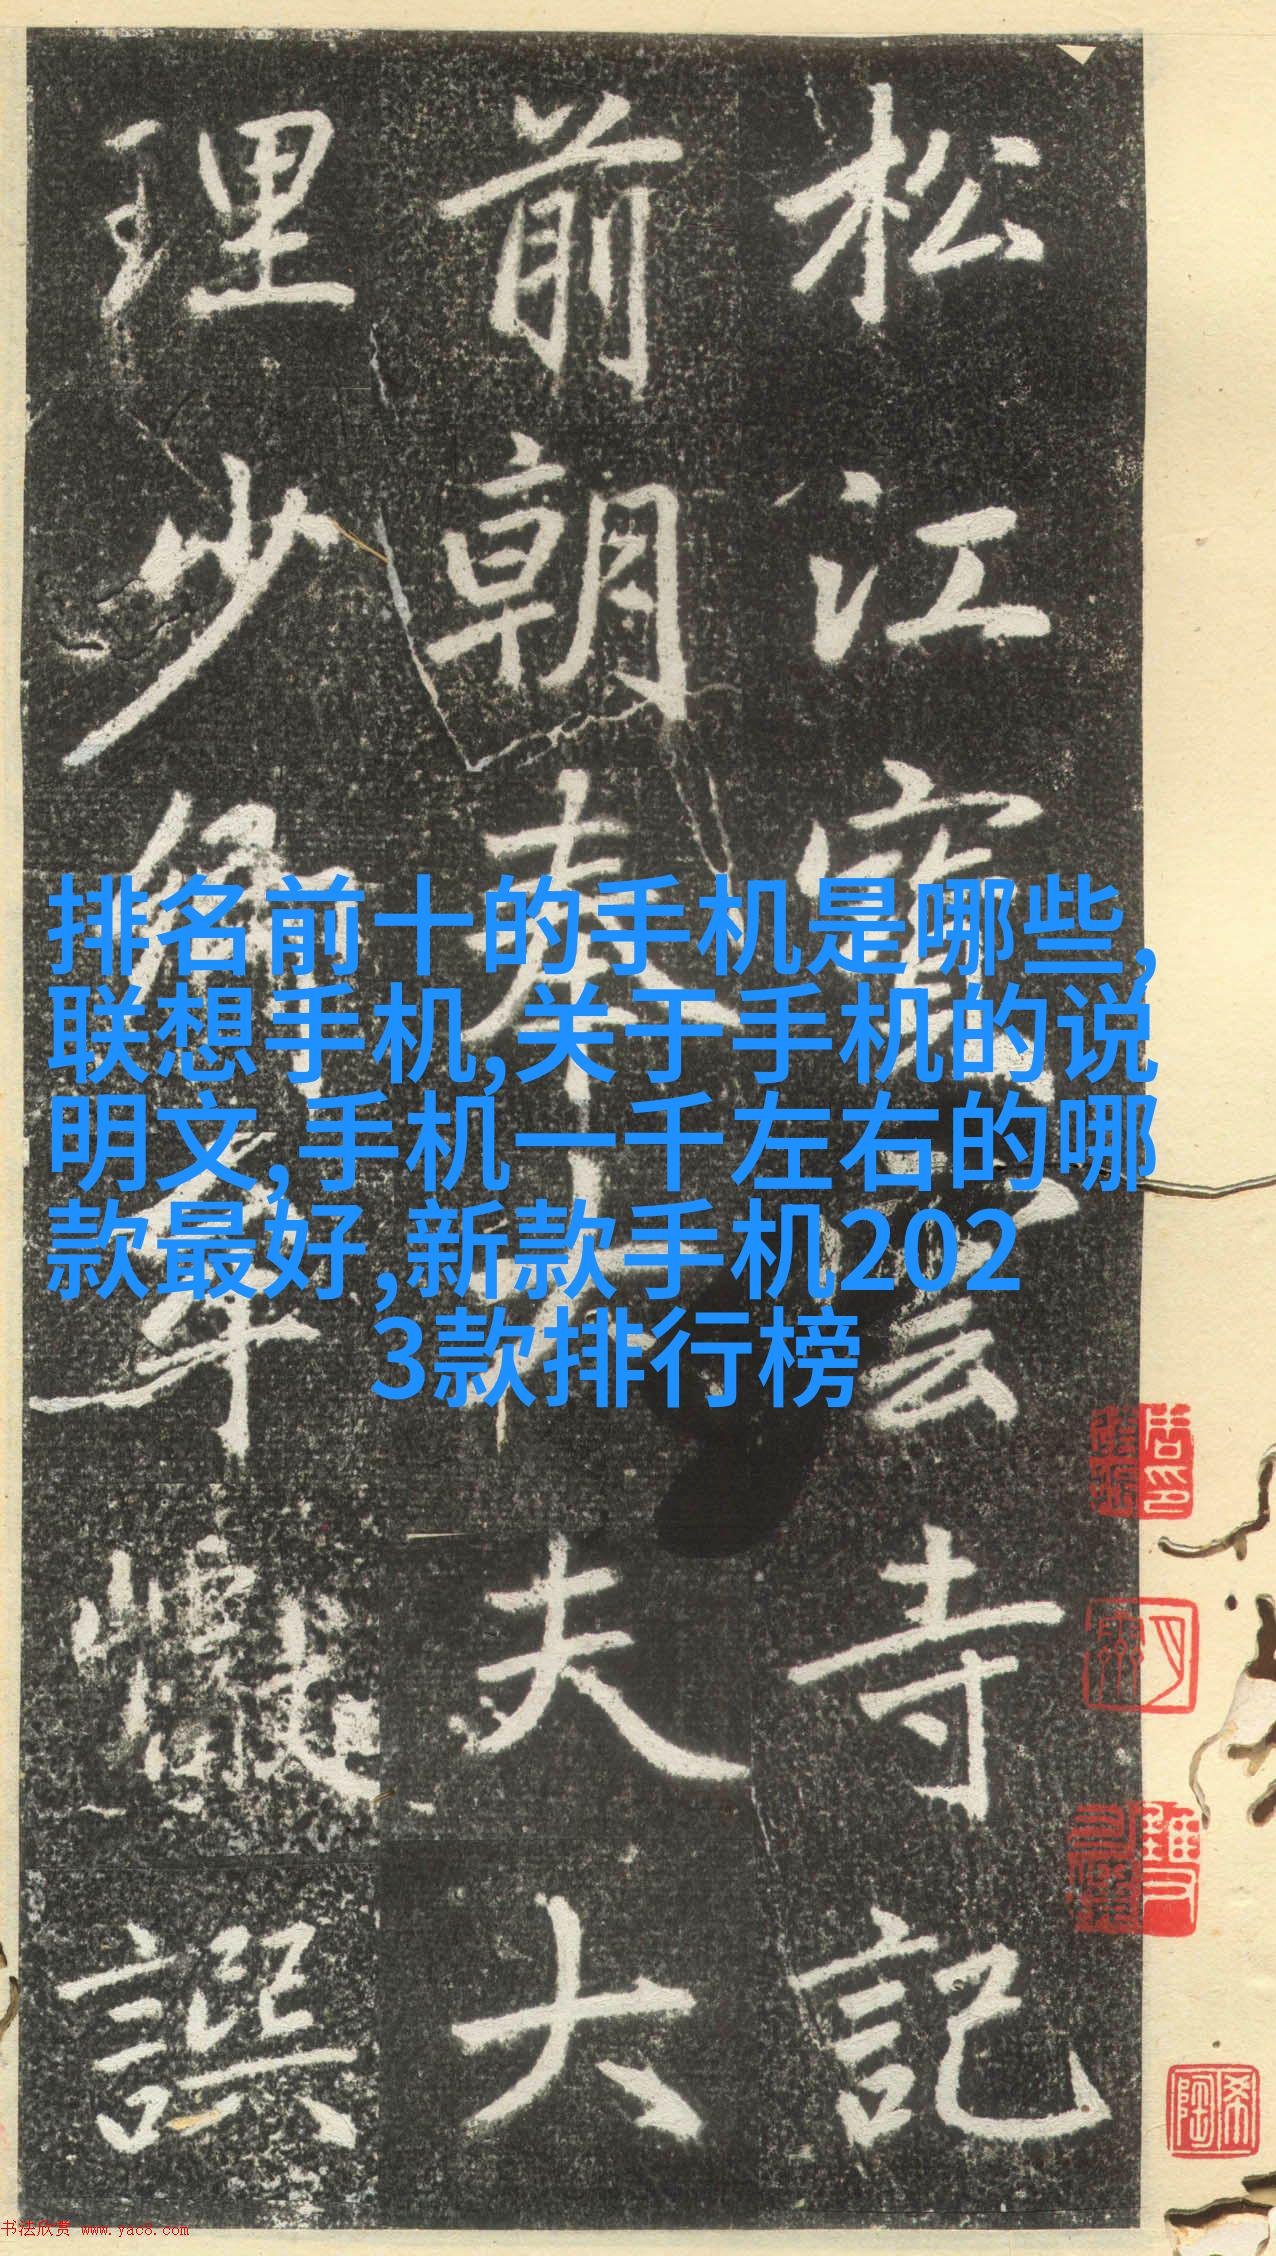 松江寶雲寺記
前朝奉大夫大
理少卿牟巘譔
排名前十的手机是哪些,
联想手机,关于手机的说
明文,手机一千左右的哪
款最好,新款手机202
3款排行榜
希陶
书法欣赏 www.yac8.com